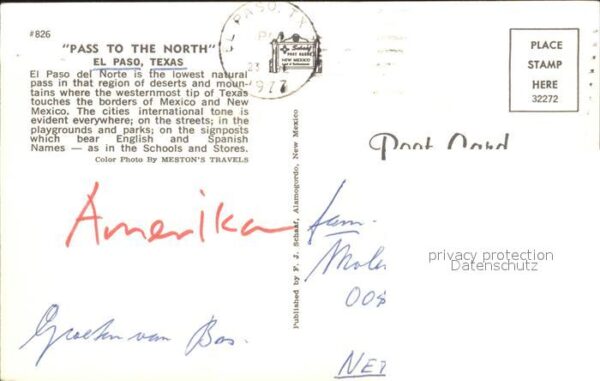 #826
"PASS TO THE NORTH"
EL PASO, TEXAS
El Paso del Norte is the lowest natural
pass in that region of deserts and moun-
tains where the westernmost tip of Texas
touches the borders of Mexico and New
Mexico. The cities international tone is
evident everywhere; on the streets; in the
playgrounds and parks; on the signposts
which bear English and Spanish
Names — as in the Schools and Stores.
Color Photo By MESTON'S TRAVELS
EL PASO, TX
PM
23
1977
Schaaf
POST CARDS
NEW MEXICO
Published by F. J. Schaaf, Alamogordo, New Mexico
PLACE
STAMP
HERE
32272
Post Card
Amerika
fam.
Mole
005
NET
Groeten van Bas.
privacy protection
Datenschutz